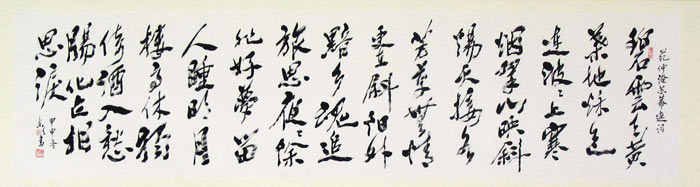 范仲淹蘇幕遮詞
碧雲天黄
葉地秋色
連波々上寒
烟翠山映斜
陽天接水
芳草無情
更在斜陽外
黯乡魂追
旅思夜々除
非好夢留
人睡明月
樓高休獨
倚酒入愁
腸化作相
思淚
甲申冬
書